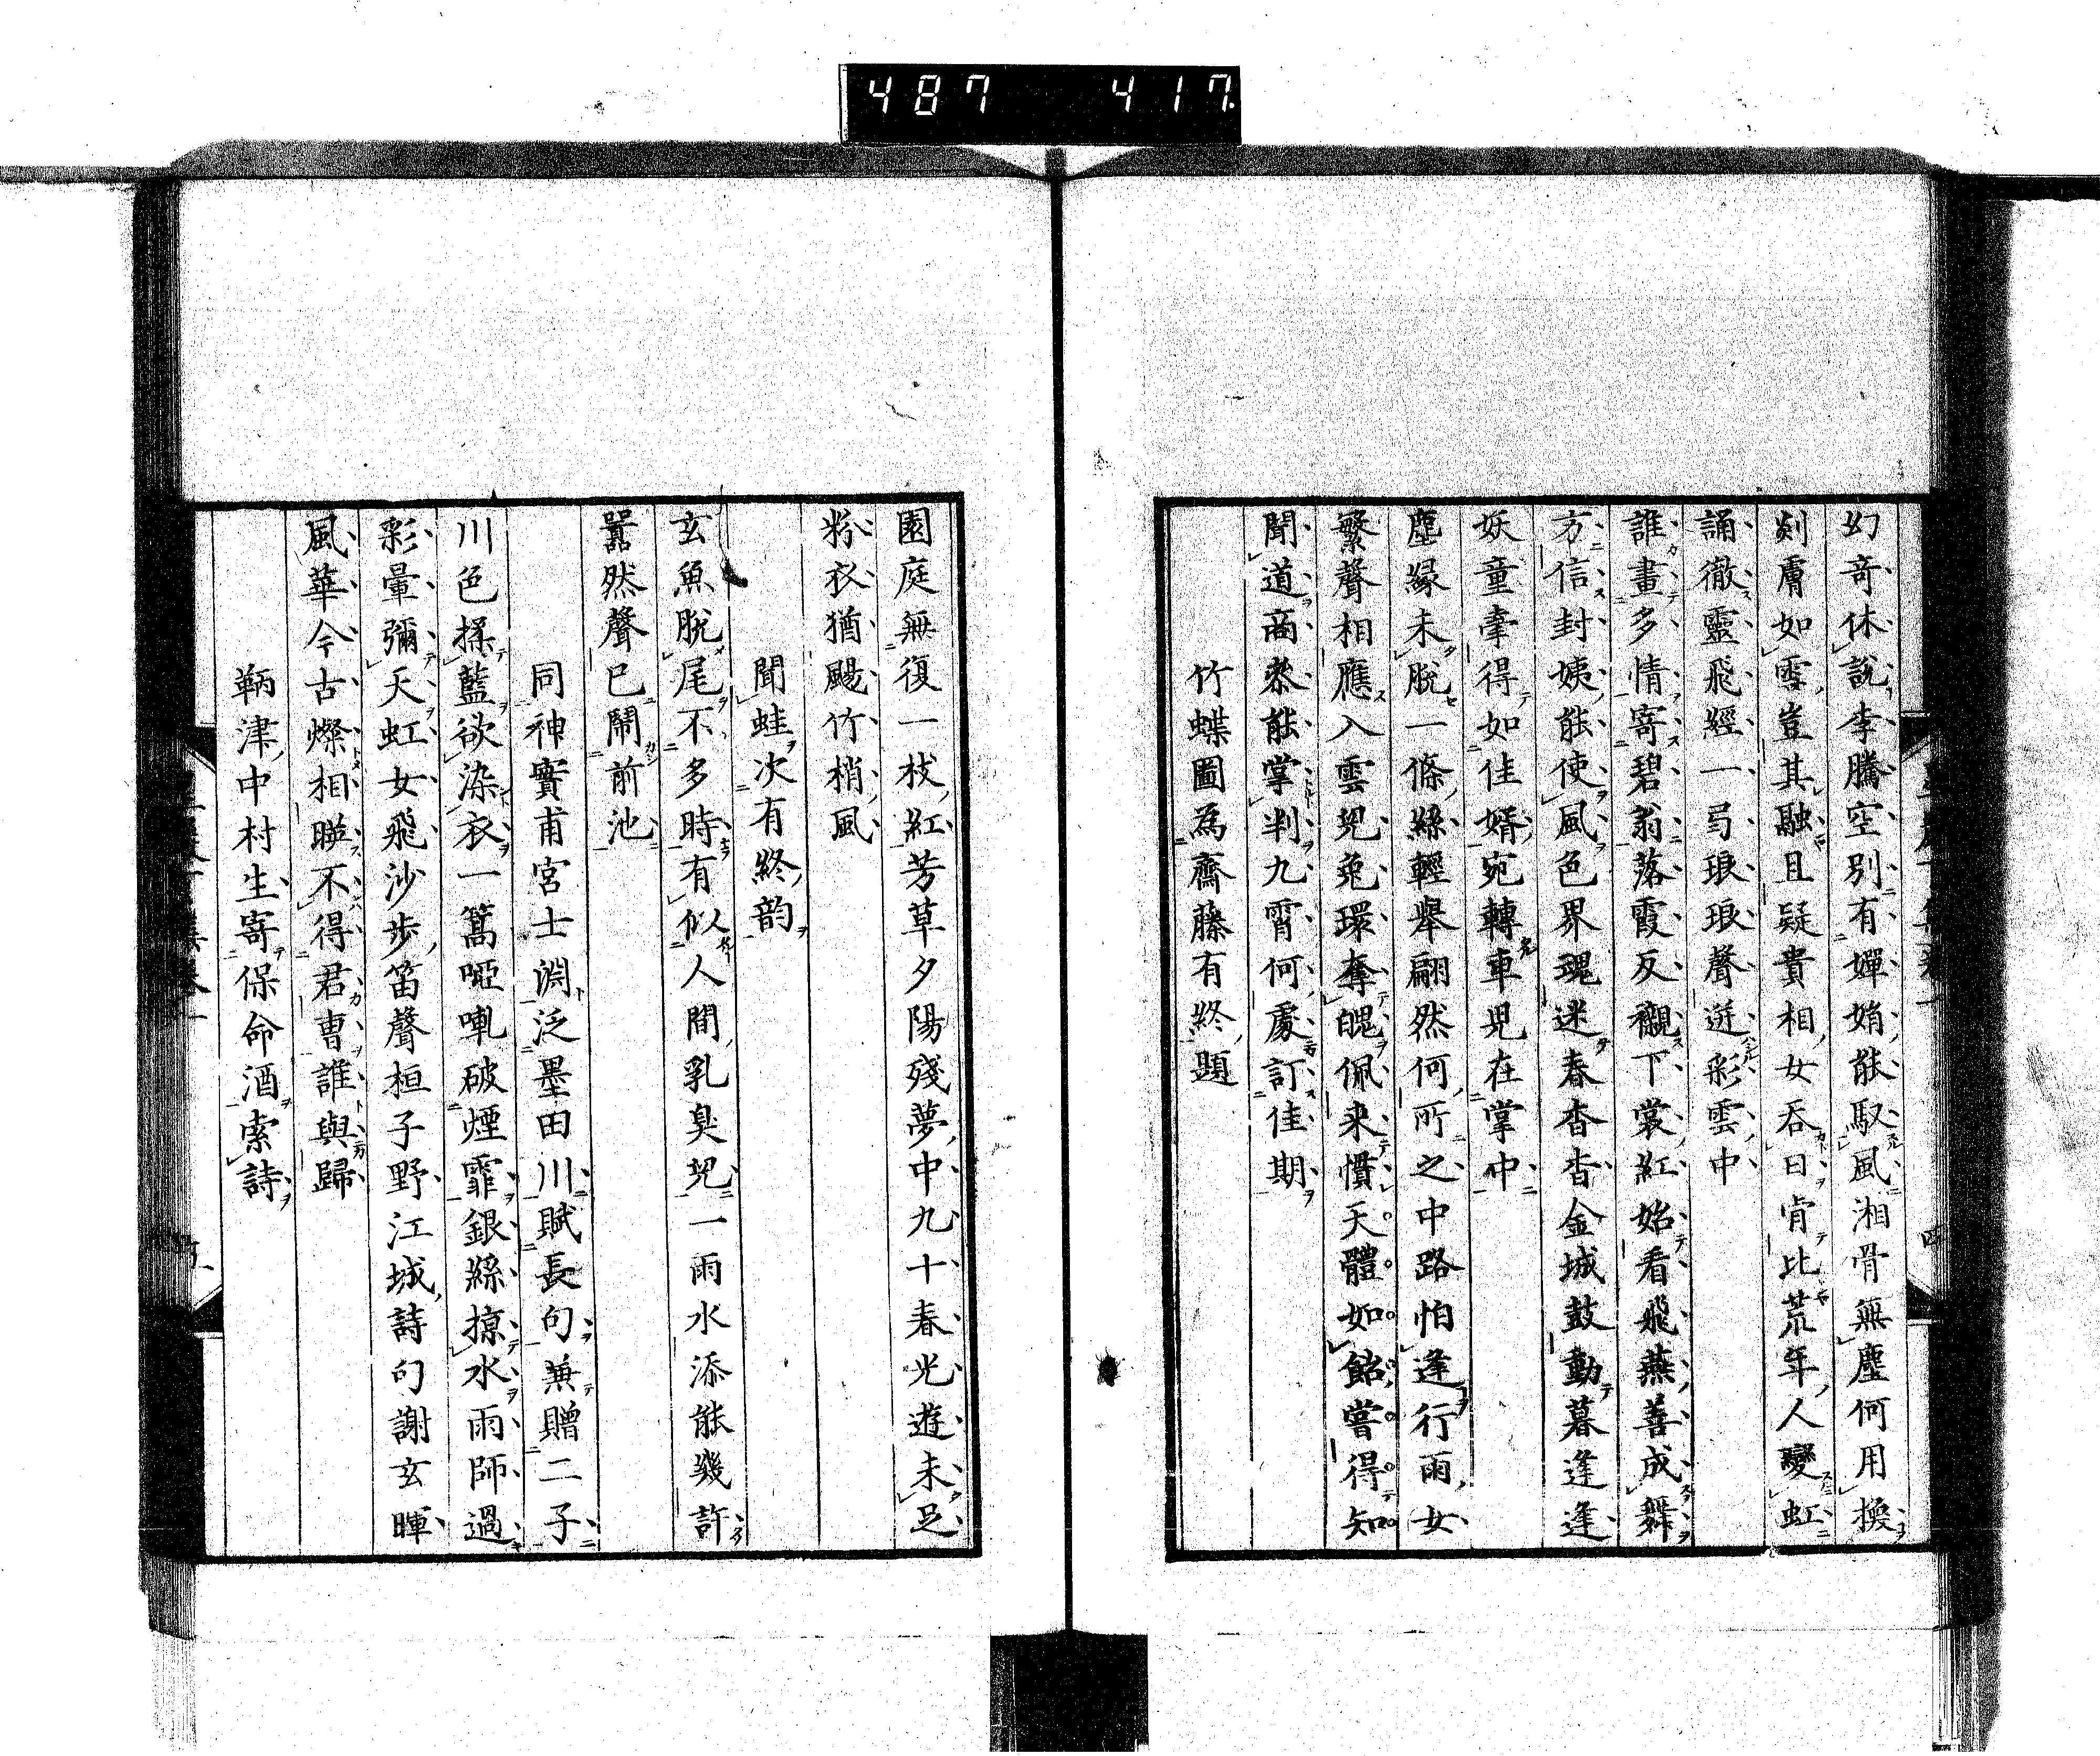 487 417
幻奇休說李騰空別有嬋娟能馭風湘骨無塵何用換
剡膚如雪豈其融且疑貴相女吞日肯比荒年人變虹
誦徹靈飛經一弓琅琅聲遊彩雲中
誰畫多情寄碧翁落霞反襯下裳紅始看飛燕善成舞
方信封姨能使風色界瑰迷春杳杳金城鼓動暮逢逢
妖童牽得如佳婿宛轉車兒在掌中
塵緣未脫一條絲輕舉翩然何所之中路怕逢行雨女
繁聲相應入雲兒兔環奪魄佩来慣天體如飴嘗得知
聞道商叅能掌判九霄何處訂佳期
竹蝶圖為齋藤有終題
園庭無復一枝紅芳草夕陽殘夢中九十春光遊未足
粉衣猶颺竹梢風
聞蛙次有終韵
玄魚脫尾不多時有似人間乳臭兒一雨水添能幾許
囂然聲已鬧前池
同神實甫宮士淵泛墨田川賦長句兼贈二子
川色揉藍欲染衣一篙啞軋破煙霏銀絲掠水雨師過
彩暈彌天虹女飛沙步笛聲桓子野江城詩句謝玄暉
風華今古燦相暎不得君曹誰與歸
鞆津中村生寄保命酒索詩